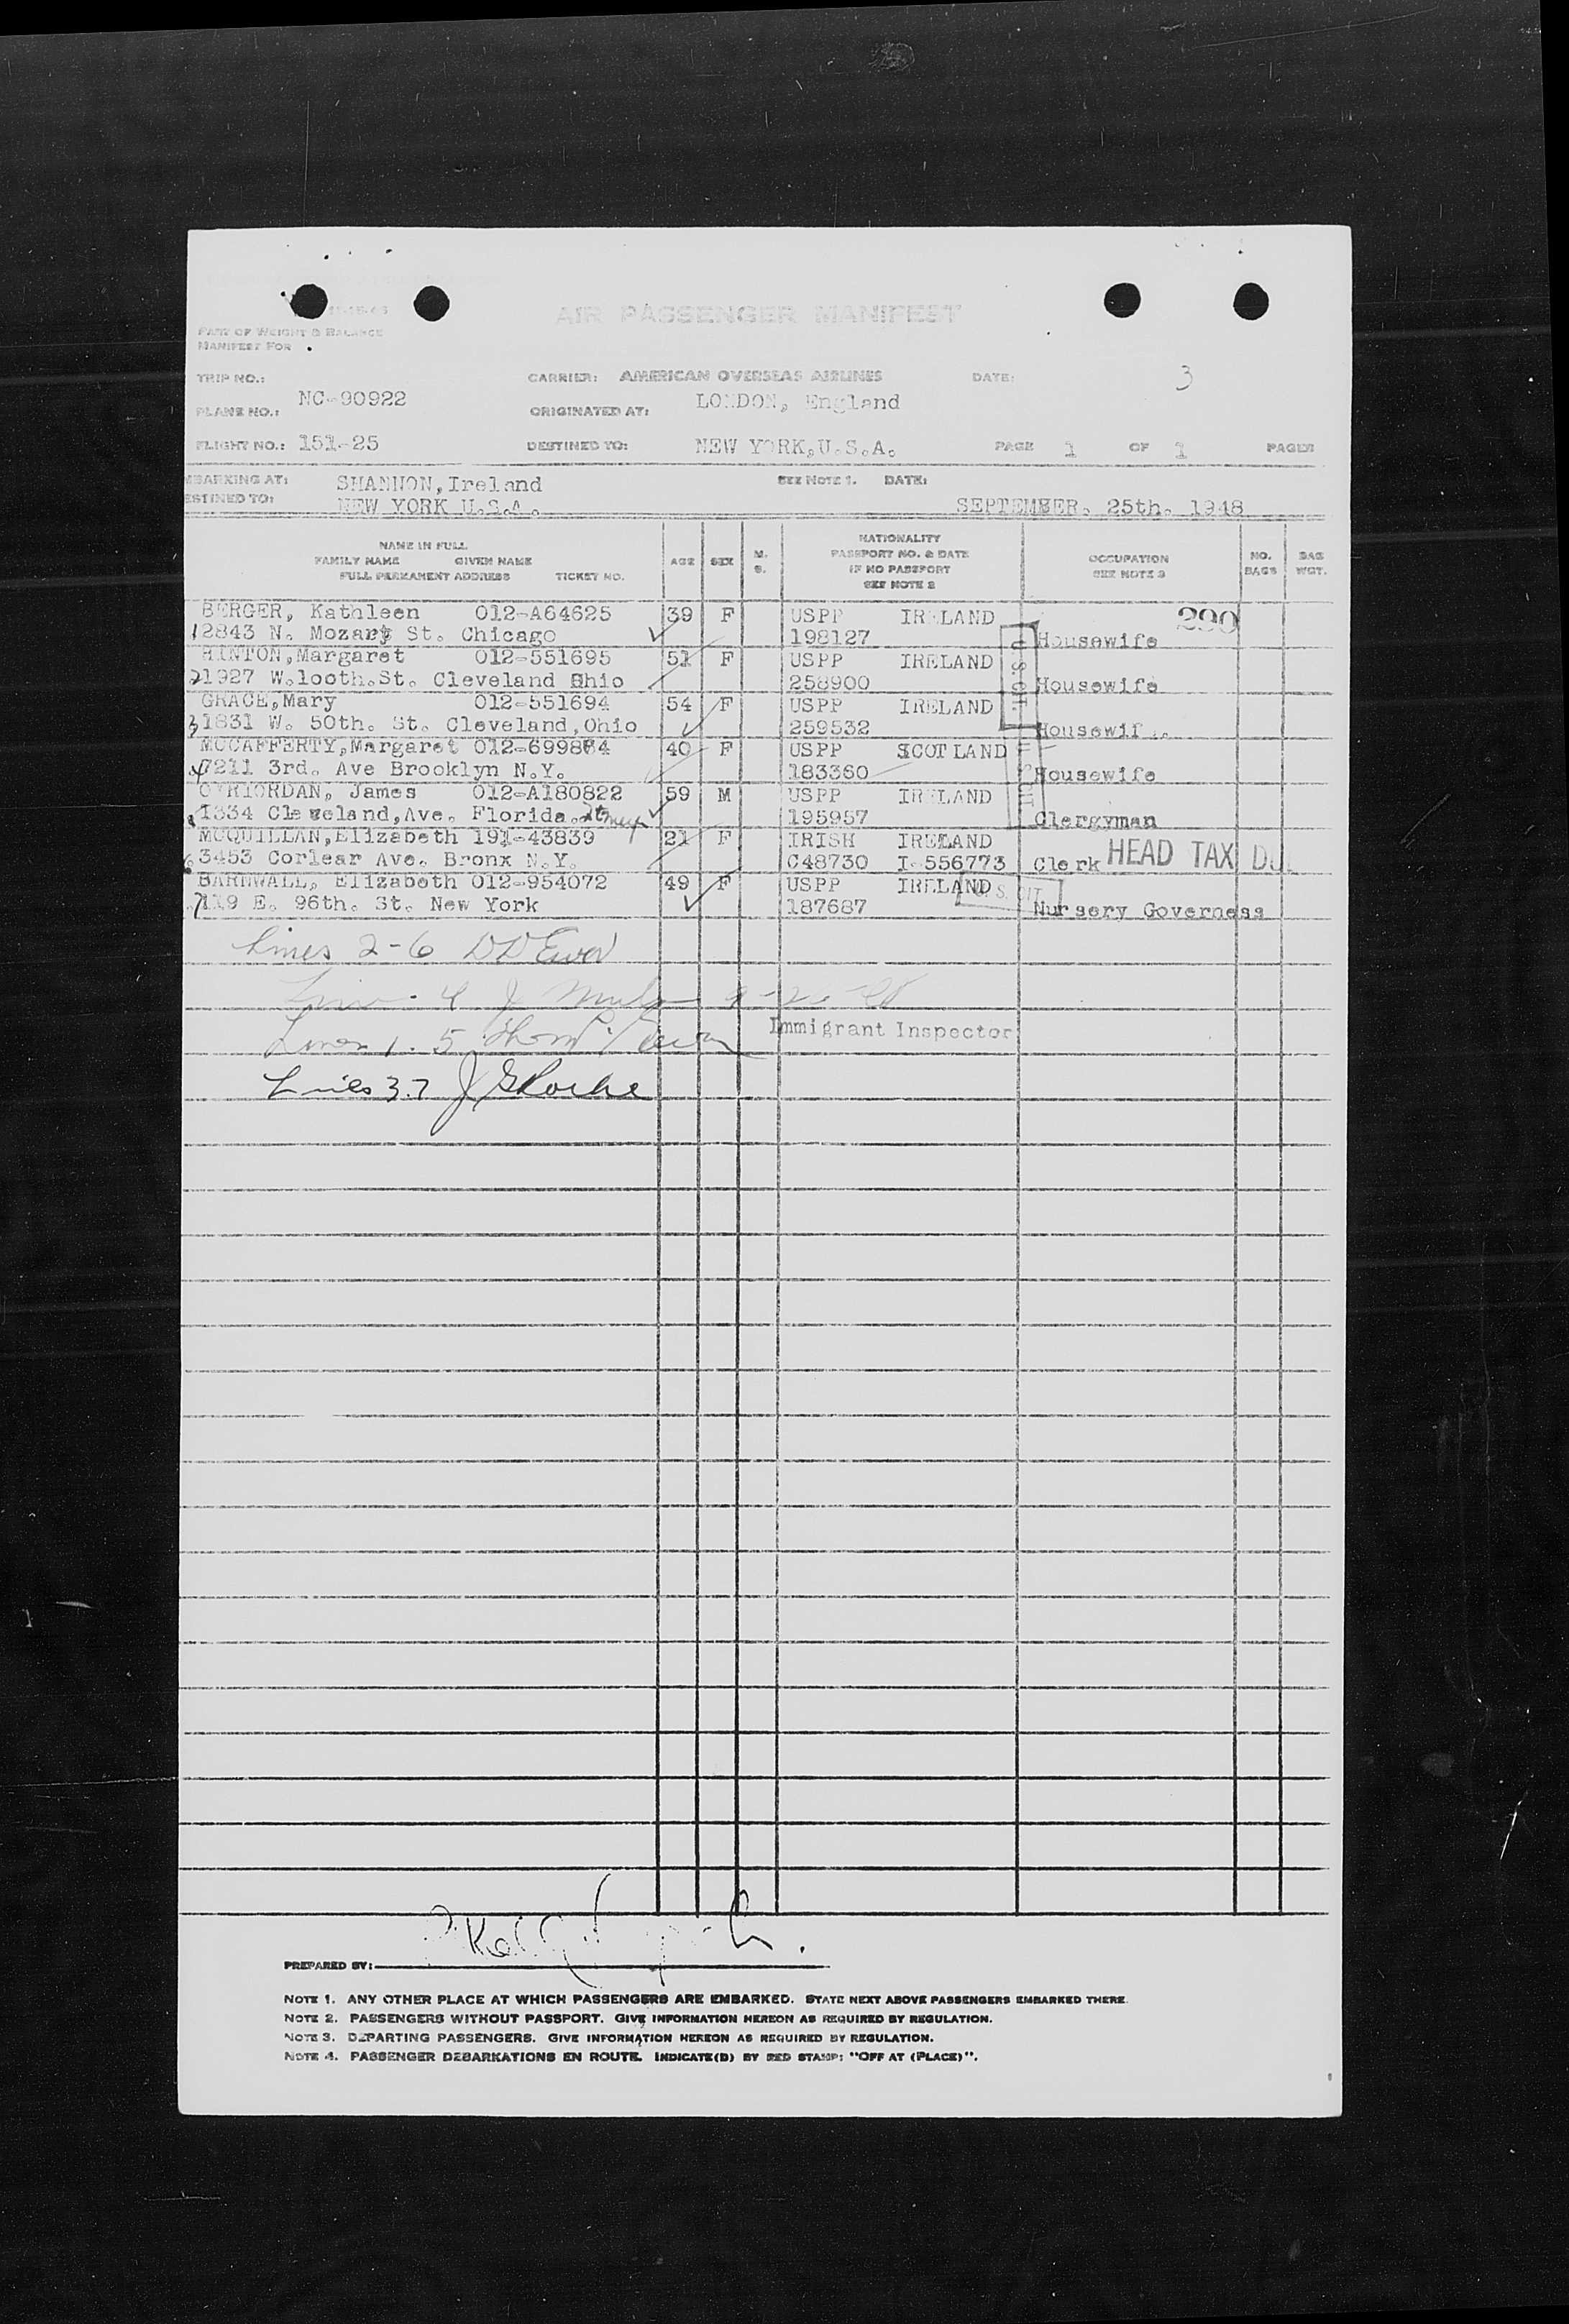 11-15-45
AIR PASSENGER MANIFEST
PART OF WEIGHT & BALANCE
MANIFEST FOR
TRIP NO.: CARRIER: AMERICAN OVERSEAS AIRLINES DATE: 3
PLANE NO.: NC-90922 ORIGINATED AT: LONDON, England
FLIGHT NO.: 151-25 DESTINED TO: NEW YORK,U.S.A. PAGE 1 OF 1 PAGES
MBARKING AT: SHANNON,Ireland SEE NOTE 1. DATE:
ESTINED TO: NEW YORK U.S.A. SEPTEMBER. 25th. 1948
NAME IN FULL
FAMILY NAME GIVEN NAME
FULL PERMANENT ADDRESS TICKET NO.
AGE SEX M. S.
NATIONALITY
PASSPORT NO. & DATE
IF NO PASSPORT
SEE NOTE 2
OCCUPATION
SEE NOTE 3
NO. BAGS
BAG WGT.
BERGER, Kathleen 012-A64625 39 F USPP IRELAND 290
1 2843 N. Mozart St. Chicago 198127 Housewife
HINTON,Margaret 012-551695 51 F USPP IRELAND
2 1927 W.looth.St. Cleveland Ohio 258900 Housewife
GRACE,Mary 012-551694 54 F USPP IRELAND
3 1831 W. 50th. St. Cleveland,Ohio 259532 Housewif
MCCAFFERTY,Margaret 012-699884 40 F USPP SCOTLAND
4 7211 3rd. Ave Brooklyn N.Y. 183360 Housewife
O'RIORDAN, James 012-A180822 59 M USPP IRELAND
1334 Cleveland,Ave. Florida. 195957 Clergyman
MCQUILLAN,Elizabeth 191-43839 21 F IRISH IRELAND
6 3453 Corlear Ave. Bronx N.Y. C48730 I-556773 Clerk HEAD TAX DU
BARNWALL, Elizabeth 012-954072 49 F USPP IRELAND
7 119 E. 96th. St. New York 187687 U.S. CIT. Nursery Governess
Lines 2-6
Line 4
Immigrant Inspector
Lines 1. 5
Lines 3.7 J G Roche
PREPARED BY:
NOTE 1. ANY OTHER PLACE AT WHICH PASSENGERS ARE EMBARKED. STATE NEXT ABOVE PASSENGERS EMBARKED THERE.
NOTE 2. PASSENGERS WITHOUT PASSPORT. GIVE INFORMATION HEREON AS REQUIRED BY REGULATION.
NOTE 3. DEPARTING PASSENGERS. GIVE INFORMATION HEREON AS REQUIRED BY REGULATION.
NOTE 4. PASSENGER DEBARKATIONS EN ROUTE. INDICATE(D) BY RED STAMP: "OFF AT (PLACE)".